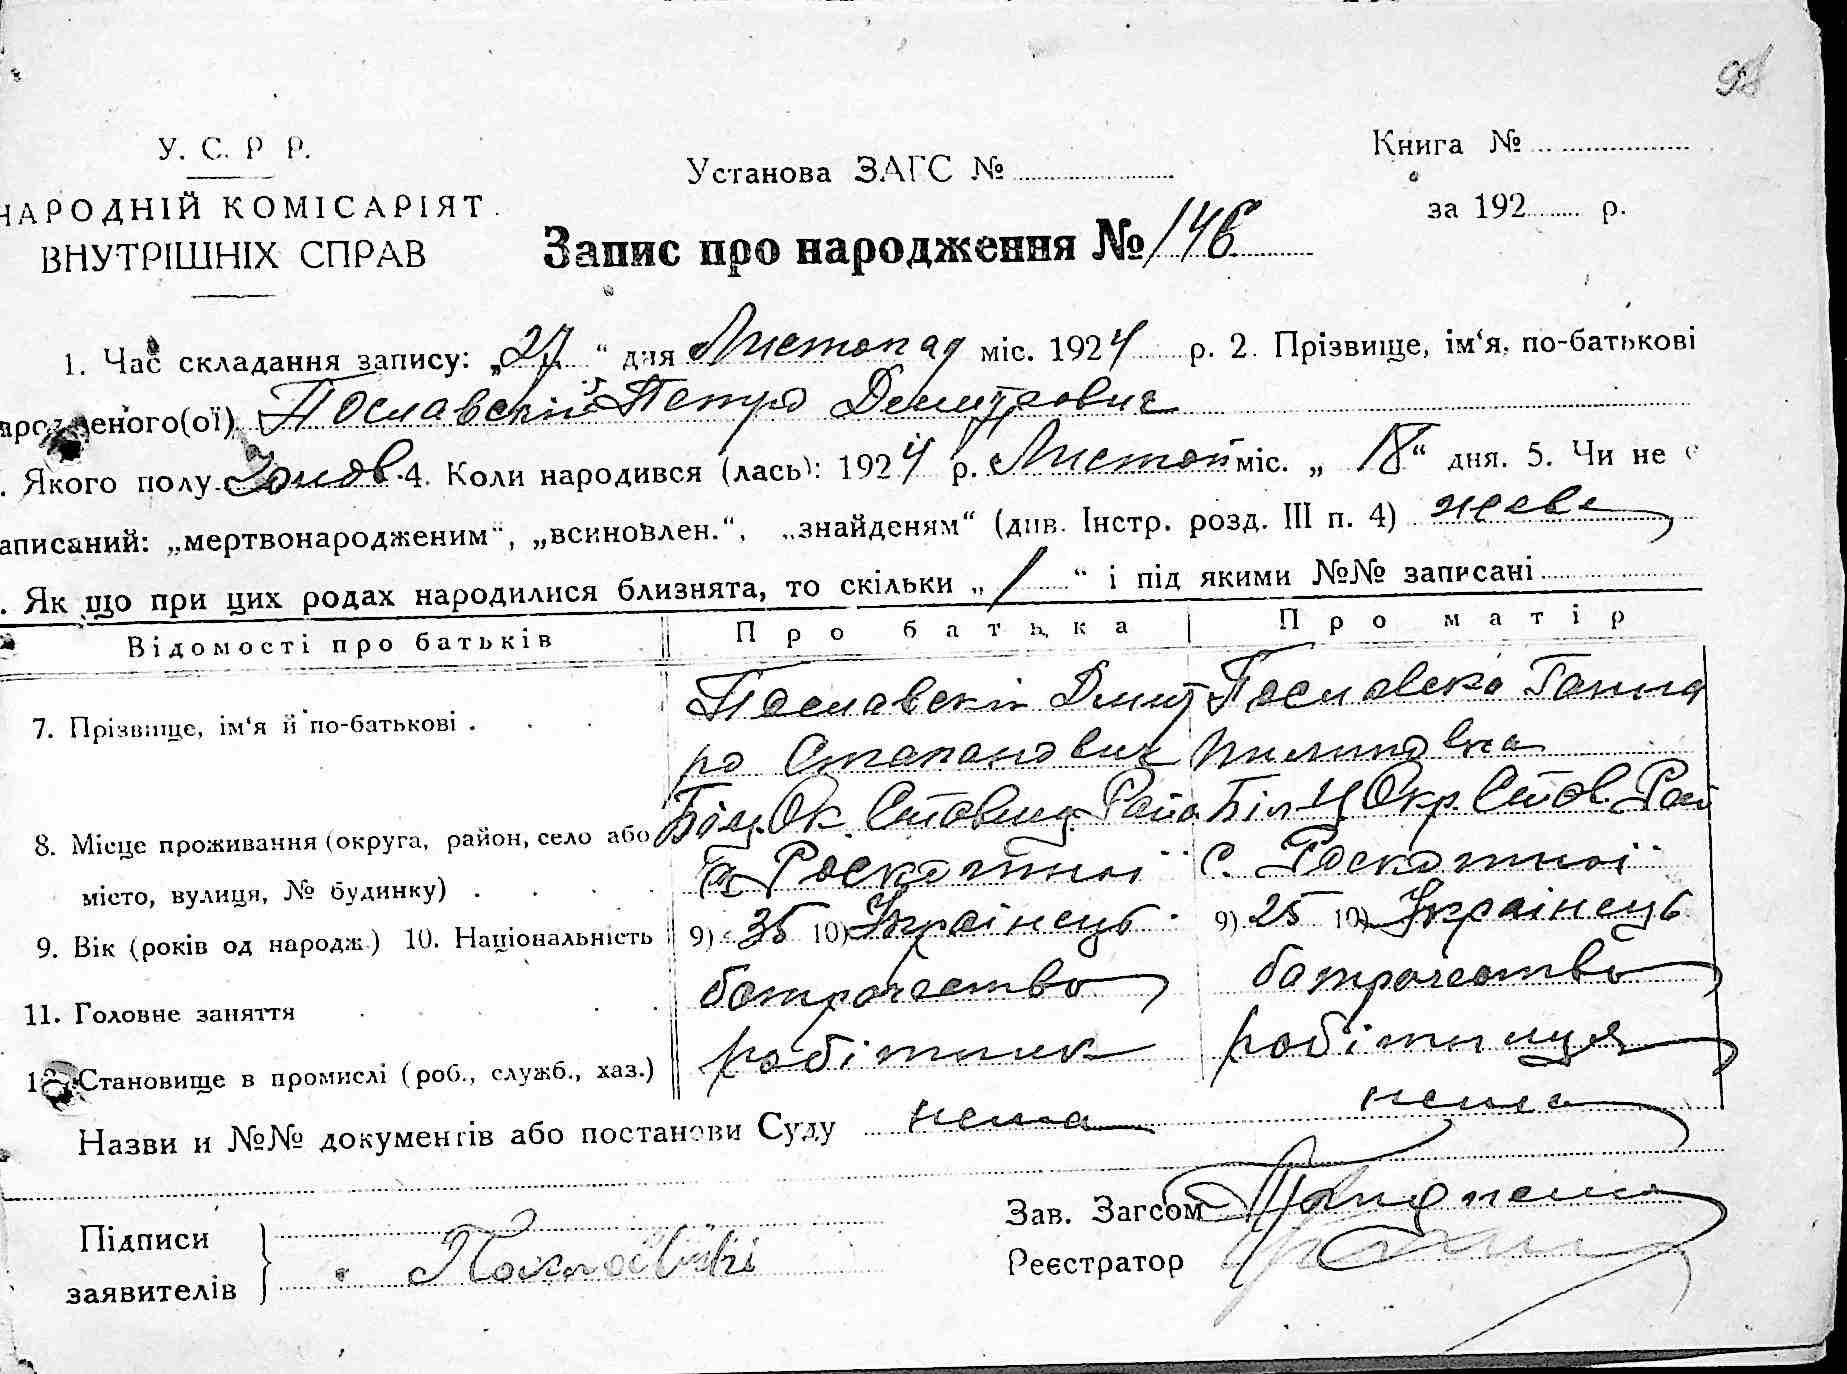 98
У. С. Р Р.
НАРОДНІЙ КОМІСАРІЯТ
ВНУТРІШНІХ СПРАВ
Установа ЗАГС №
Книга №
за 192 р.
Запис про народження № 146
1. Час складання запису: „27“ дня Листопад міс. 1924 р. 2. Прізвище, ім‘я, по-батькові
Пославскій Петро Дмитрович
. Якого полу 4. Коли народився (лась): 1924 р. Листоп міс. „18“ дня. 5. Чи не є
аписаний: „мертвонародженим“, „всиновлен.“, „знайденям“ (див. Інстр. розд. III п. 4) живе
. Як що при цих родах народилися близнята, то скільки „/“ і під якими №№ записані
Відомості про батьків Про батька Про матір
7. Прізвище, ім‘я й по-батькові . Пославскій Дмит Пославска Ганна
ро Степанович Пилиповна
8. Місце проживання (округа, район, село або Біл. Ок. Ставищ. Район Біл Ц Окр. Став. Рай
місто, вулиця, № будинку) . с. Роскотної с. Роскотної
9. Вік (років од народж.) 10. Національність 9) 35 10) Українець 9) 25 10) Українець
11. Головне заняття батрачество батрачество
12. Становище в промислі (роб., служб., хаз.) робітник робітниця
Назви и №№ документів або постанови Суду нема нема
Підписи
заявителів
Пославскі
Зав. Загсом
Реєстратор